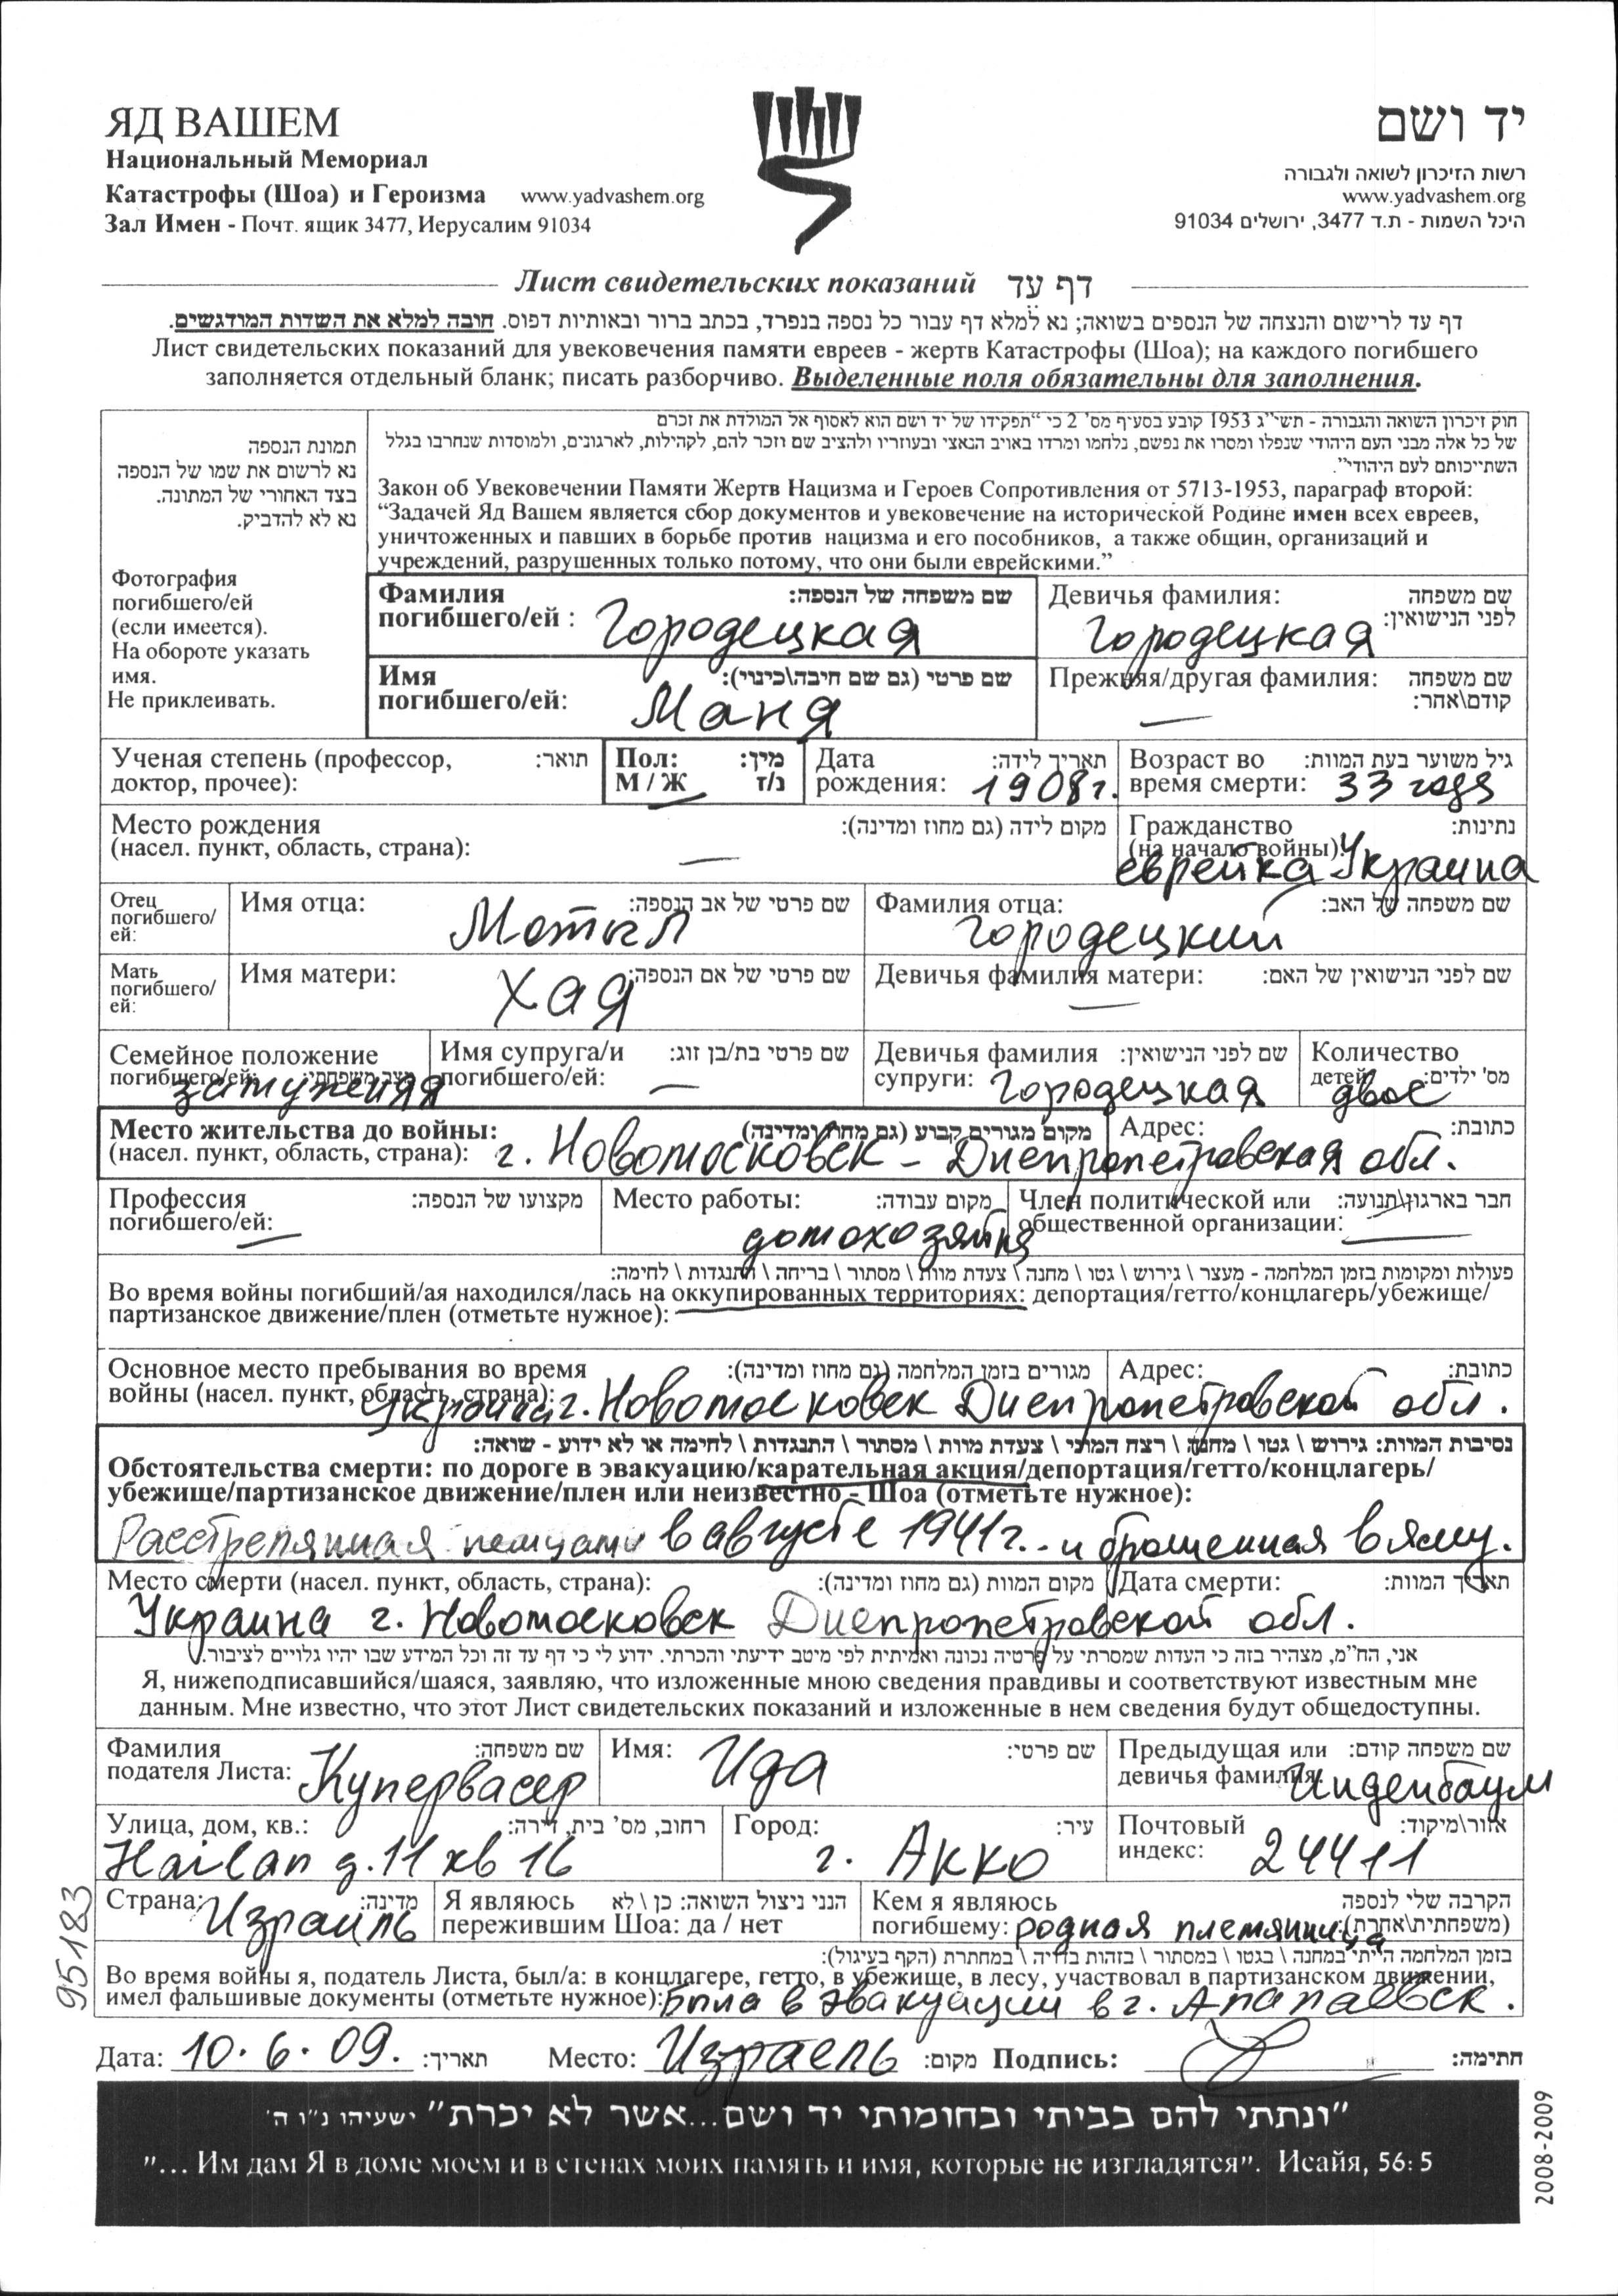 ЯД ВАШЕМ
יד ושם
Национальный Мемориал
Катастрофы (Шоа) и Героизма www.yadvashem.org
Зал Имен - Почт. ящик 3477, Иерусалим 91034
רשות הזיכרון לשואה ולגבורה
www.yadvashem.org
היכל השמות - ת.ד 3477, ירושלים 91034
Лист свидетельских показаний דף עד
דף עד לרישום והנצחה של הנספים בשואה; נא למלא דף עבור כל נספה בנפרד, בכתב ברור ובאותיות דפוס. חובה למלא את השדות המודגשים.
Лист свидетельских показаний для увековечения памяти евреев - жертв Катастрофы (Шоа); на каждого погибшего
заполняется отдельный бланк; писать разборчиво. Выделенные поля обязательны для заполнения.
תמונת הנספה
נא לרשום את שמו של הנספה
בצד האחורי של המתונה.
נא לא להדביק.
Фотография
погибшего/ей
(если имеется).
На обороте указать
имя.
Не приклеивать.
חוק זיכרון השואה והגבורה - תשי"ג 1953 קובע בסעיף מס' 2 כי "תפקידו של יד ושם הוא לאסוף אל המולדת את זכרם
של כל אלה מבני העם היהודי שנפלו ומסרו את נפשם, נלחמו ומרדו באויב הנאצי ובעוזריו ולהציב שם וזכר להם, לקהילות, לארגונים, ולמוסדות שנחרבו בגלל
השתייכותם לעם היהודי".
Закон об Увековечении Памяти Жертв Нацизма и Героев Сопротивления от 5713-1953, параграф второй:
“Задачей Яд Вашем является сбор документов и увековечение на исторической Родине имен всех евреев,
уничтоженных и павших в борьбе против нацизма и его пособников, а также общин, организаций и
учреждений, разрушенных только потому, что они были еврейскими.”
Фамилия שם משפחה של הנספה:
погибшего/ей : Городецкая
Девичья фамилия: שם משפחה
לפני הנישואין:
Городецкая
Имя שם פרטי (גם שם חיבה\כינוי):
погибшего/ей: Маня
Прежняя/другая фамилия: שם משפחה
קודם\אחר:
—
Ученая степень (профессор, תואר:
доктор, прочее):
Пол: מין:
М / Ж ז/נ
Дата תאריך לידה:
рождения: 1908г.
Возраст во גיל משוער בעת המוות:
время смерти: 33 года
Место рождения מקום לידה (גם מחוז ומדינה):
(насел. пункт, область, страна): —
Гражданство נתינות:
(на начало войны):
еврейка Украина
Отец
погибшего/
ей:
Имя отца: שם פרטי של אב הנספה:
Мотыл
Фамилия отца: שם משפחה של האב:
Городецкий
Мать
погибшего/
ей:
Имя матери: שם פרטי של אם הנספה:
Хая
Девичья фамилия матери: שם לפני הנישואין של האם:
—
Семейное положение
погибшего/ей: מצב משפחתי:
замужняя
Имя супруга/и שם פרטי בת/בן זוג:
погибшего/ей: —
Девичья фамилия שם לפני הנישואין:
супруги: Городецкая
Количество
детей: מס' ילדים:
двое
Место жительства до войны: מקום מגורים קבוע (גם מחוז ומדינה)
(насел. пункт, область, страна): г. Новомосковск - Днепропетровская обл.
Адрес: כתובת:
Профессия מקצועו של הנספה:
погибшего/ей: —
Место работы: מקום עבודה:
домохозяйка
Член политической или חבר בארגון\תנועה:
общественной организации: —
פעולות ומקומות בזמן המלחמה - מעצר \ גירוש \ גטו \ מחנה \ צעדת מוות \ מסתור \ בריחה \ התנגדות \ לחימה:
Во время войны погибший/ая находился/лась на оккупированных территориях: депортация/гетто/концлагерь/убежище/
партизанское движение/плен (отметьте нужное):
Основное место пребывания во время מגורים בזמן המלחמה (גם מחוז ומדינה):
Адрес: כתובת:
войны (насел. пункт, область, страна): Украина г. Новомосковск Днепропетровской обл.
נסיבות המוות: גירוש \ גטו \ מחנה \ רצח המוני \ צעדת מוות \ מסתור \ התנגדות \ לחימה או לא ידוע - שואה:
Обстоятельства смерти: по дороге в эвакуацию/карательная акция/депортация/гетто/концлагерь/
убежище/партизанское движение/плен или неизвестно - Шоа (отметьте нужное):
Расстрелянная немцами в августе 1941г. и брошенная в яму.
Место смерти (насел. пункт, область, страна): מקום המוות (גם מחוז ומדינה):
Дата смерти: תאריך המוות:
Украина г. Новомосковск Днепропетровской обл.
אני, הח"מ, מצהיר בזה כי העדות שמסרתי על פרטיה נכונה ואמיתית לפי מיטב ידיעתי והכרתי. ידוע לי כי דף עד זה וכל המידע שבו יהיו גלויים לציבור.
Я, нижеподписавшийся/шаяся, заявляю, что изложенные мною сведения правдивы и соответствуют известным мне
данным. Мне известно, что этот Лист свидетельских показаний и изложенные в нем сведения будут общедоступны.
Фамилия שם משפחה:
подателя Листа: Купервасер
Имя: שם פרטי:
Ида
Предыдущая или שם משפחה קודם:
девичья фамилия:
Инденбаум
Улица, дом, кв.: רחוב, מס' בית, דירה:
Hailan д. 11 кв 16
Город: עיר:
г. Акко
Почтовый אזור\מיקוד:
индекс: 24411
Страна: מדינה:
Израиль
Я являюсь הנני ניצול השואה: כן \ לא
пережившим Шоа: да / нет
Кем я являюсь הקרבה שלי לנספה
погибшему: (משפחתית\אחרת):
родная племянница
בזמן המלחמה הייתי במחנה \ בגטו \ במסתור \ בזהות בדויה \ במחתרת (הקף בעיגול):
Во время войны я, податель Листа, был/а: в концлагере, гетто, в убежище, в лесу, участвовал в партизанском движении,
имел фальшивые документы (отметьте нужное): Была в эвакуации в г. Алапаевск.
95183
Дата: 10.6.09. תאריך: Место: Израель מקום: Подпись: חתימה:
"ונתתי להם בביתי ובחומותי יד ושם...אשר לא יכרת" ישעיהו נ"ו ה'
"... Им дам Я в доме моем и в стенах моих память и имя, которые не изгладятся". Исайя, 56: 5
2008-2009